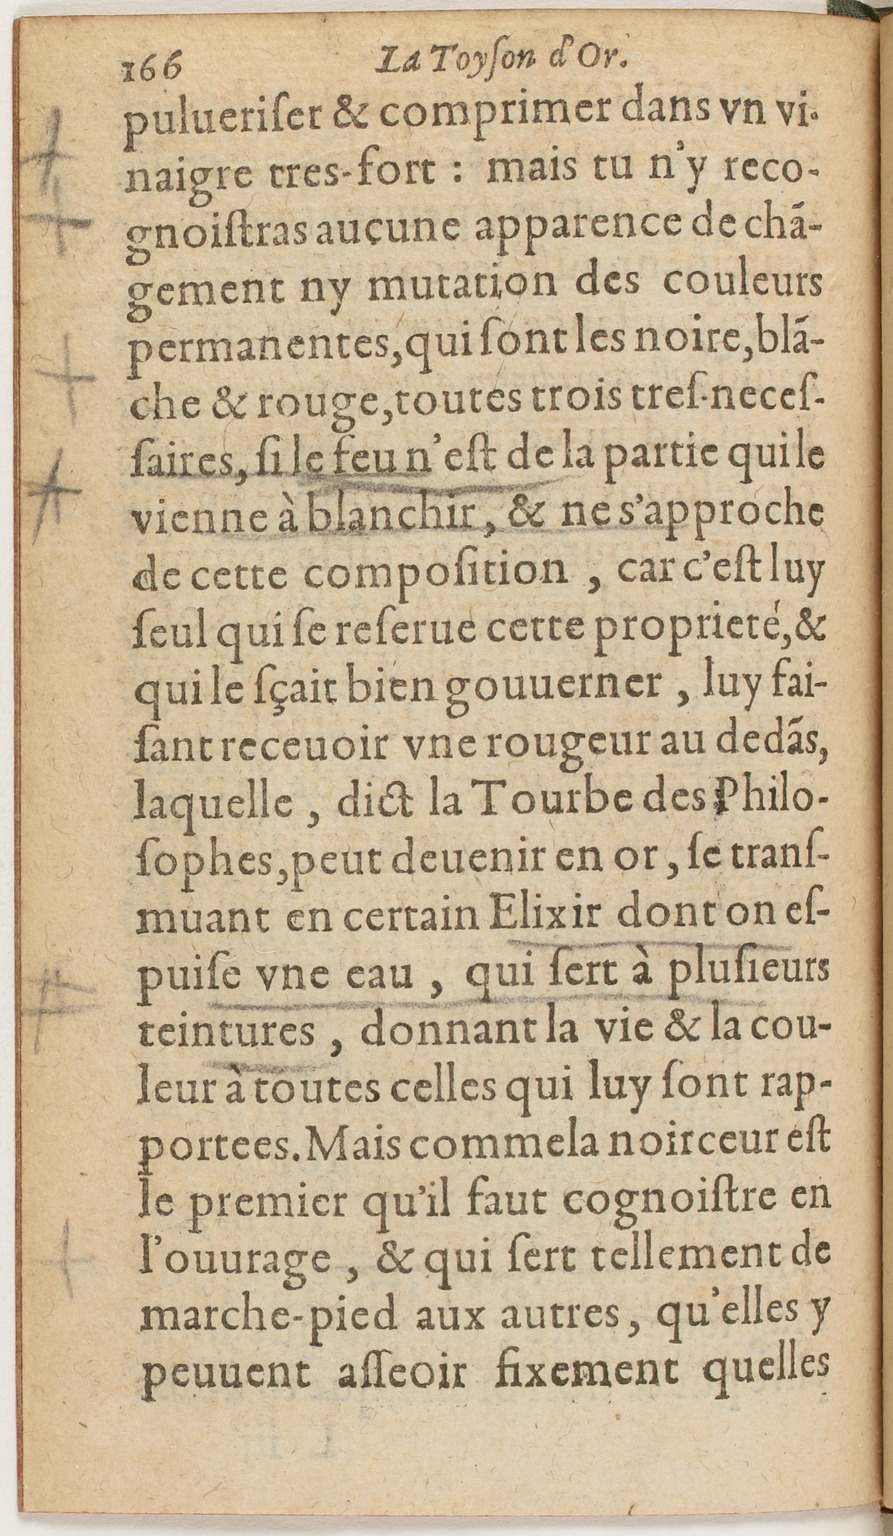 166 La Toyſon d'Or.
pulueriſer & comprimer dans vn vi-
naigre tres-fort : mais tu n'y reco-
gnoiſtras aucune apparence de chã-
gement ny mutation des couleurs
permanentes, qui ſont les noire, blã-
che & rouge, toutes trois treſ-neceſ-
ſaires, ſi le feu n'eſt de la partie qui le
vienne à blanchir, & ne s'approche
de cette compoſition , car c'eſt luy
ſeul qui ſe reſerue cette proprieté, &
qui le ſçait bien gouuerner , luy fai-
ſant receuoir vne rougeur au dedãs,
laquelle , dict la Tourbe des Philo-
ſophes, peut deuenir en or, ſe tranſ-
muant en certain Elixir dont on eſ-
puiſe vne eau , qui ſert à pluſieurs
teintures , donnant la vie & la cou-
leur à toutes celles qui luy ſont rap-
portees. Mais comme la noirceur eſt
le premier qu'il faut cognoiſtre en
l'ouurage , & qui ſert tellement de
marche-pied aux autres, qu'elles y
peuuent aſſeoir fixement quelles